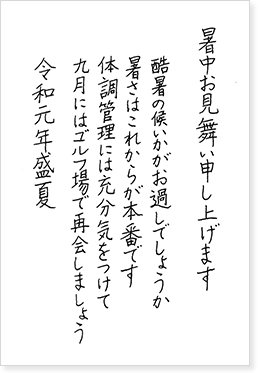 暑中お見舞い申し上げます
酷暑の候いかがお過しでしょうか
暑さはこれからが本番です
体調管理には充分気をつけて
九月にはゴルフ場で再会しましょう
令和元年盛夏